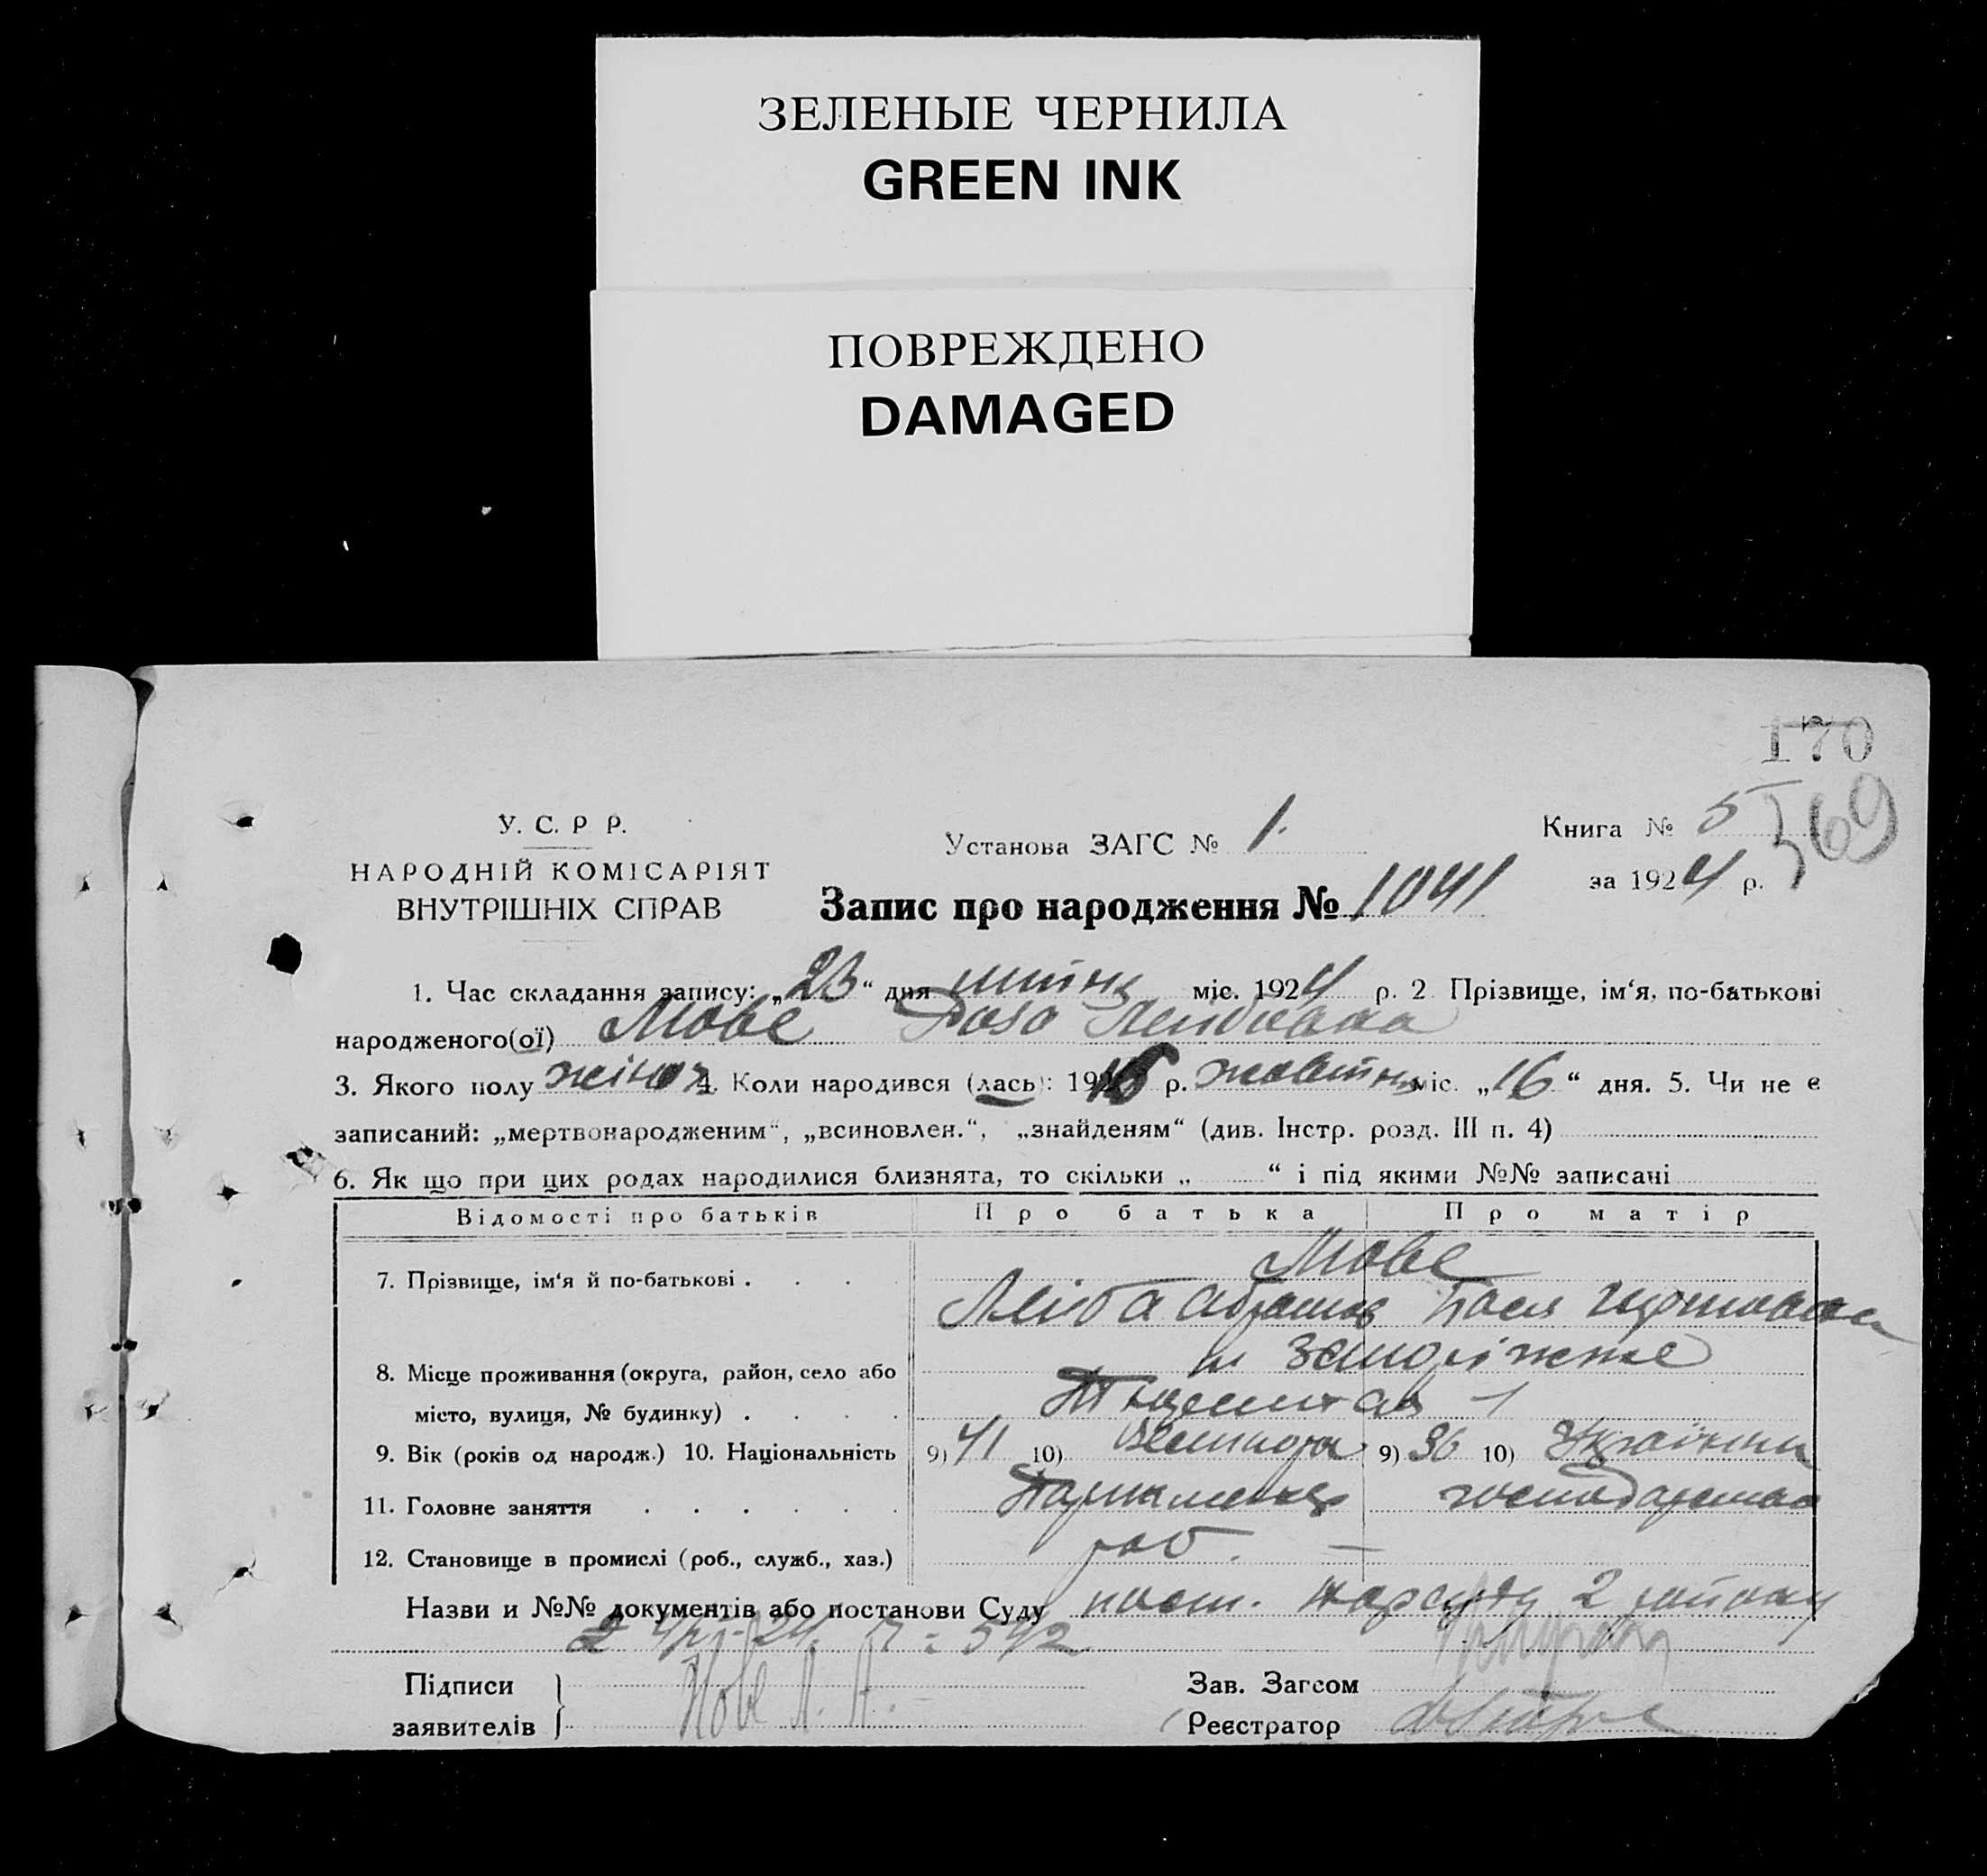 ЗЕЛЕНЫЕ ЧЕРНИЛА
GREEN INK
ПОВРЕЖДЕНО
DAMAGED
170
169
У. С. Р Р.
НАРОДНІЙ КОМІСАРІЯТ
ВНУТРІШНІХ СПРАВ
Установа ЗАГС № 1.
Книга № 5
за 1924 р.
Запис про народження № 1041
1. Час складання запису: „23“ дня липня міс. 1924 р. 2 Прізвище, ім‘я, по-батькові
народженого(ої) Мове Роза Лейбовна
3. Якого полу жіноч 4. Коли народився (лась): 19 р. жовтня міс. „16“ дня. 5. Чи не є
записаний: „мертвонародженим“, „всиновлен.“, „знайденям“ (див. Інстр. розд. III п. 4)
6. Як що при цих родах народилися близнята, то скільки „ “ і під якими №№ записані
Відомості про батьків Про батька Про матір
7. Прізвище, ім‘я й по-батькові . Мове
Лейба Абрамов Бася
8. Місце проживання (округа, район, село або м Запоріжже
місто, вулиця, № будинку) . 1
9. Вік (років од народж.) 10. Національність 9) 41 10) 9) 36 10) Українка
11. Головне заняття господарство
12. Становище в промислі (роб., служб., хаз.) роб. —
Назви и №№ документів або постанови Суду пост. нарсуду 2 району
542
Підписи
заявителів
Мове Л. А.
Зав. Загсом
Реєстратор